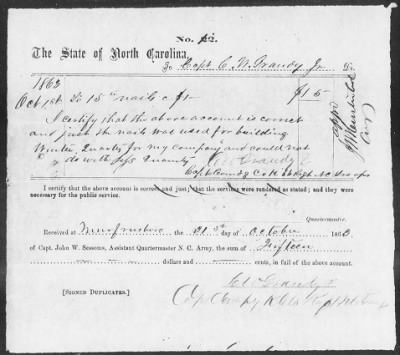 No. 12.
The State of North Carolina,
To Capt C. W. Grandy Jr Dr.
1863
Oct 1st To 15 lb nails @ $1- $15
I certify that the above account is correct
and just the nails was used for building
Winter Quarters for my company and could not
do with less Quantity
Capt Comdg Co
I certify that the above account is correct and just; that the services were rendered as stated; and they were
necessary for the public service.
Quartermaster.
Received at Murfreesboro the 21st day of October 1863,
of Capt. John W. Sessoms, Assistant Quartermaster N. C. Army, the sum of Fifteen
dollars and cents, in full of the above account.
[SIGNED DUPLICATES.]